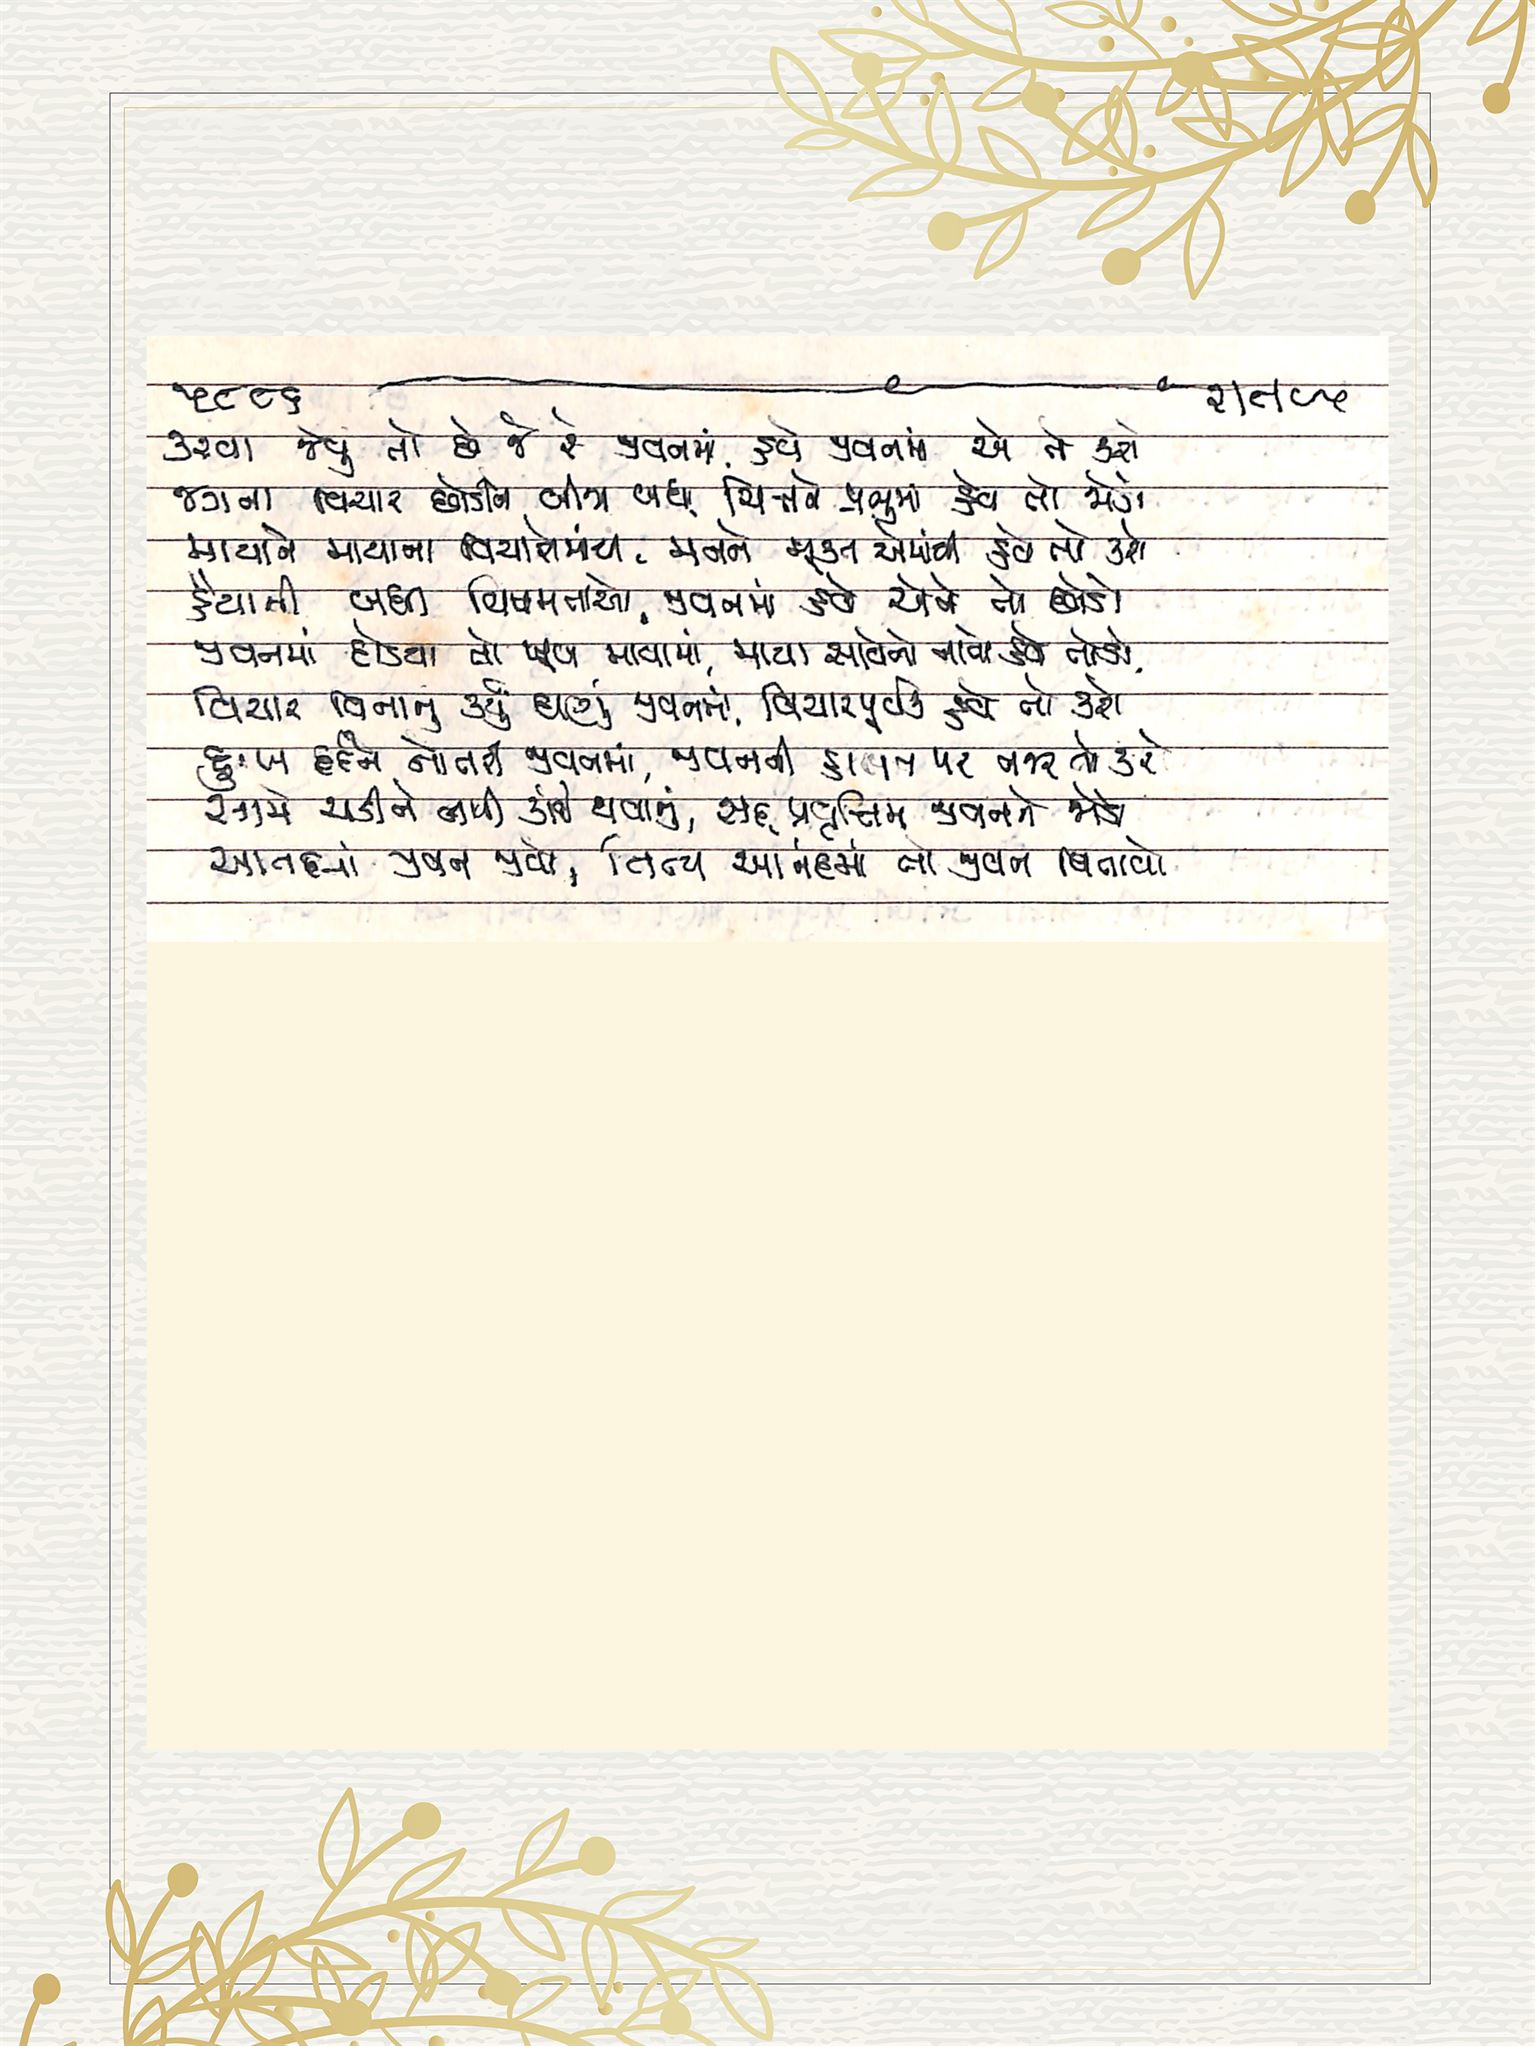 ૫૯૮૬
કરવા જેવું તો છે જે રે જીવનમાં, હવે જીવનમાં એ તો કરો
જગના વિચાર છોડીને બીજા બધા, ચિત્તને પ્રભુમાં હવે તો જોડો
માયાને માયાના વિચારોમાંથી, મનને મુક્ત એમાંથી હવે તો કરો
હૈયાની બધી વિષમતાઓ, જીવનમાં હવે એને તો છોડો
જીવનમાં દોડયા તો ખૂબ માયામાં, માયા સાથેનો નાતો હવે તોડો
વિચાર વિનાનું કર્યું ઘણું જીવનમાં, વિચારપૂર્વક હવે તો કરો
દુઃખ દર્દને નોતરી જીવનમાં, જીવનની હાલત પર નજર તો કરો
ચડીને થવાનું, સદ્ પ્રવૃત્તિમાં જીવનને જોડો
જીવન જીવો, નિત્ય આનંદમાં તો જીવન વિતાવો